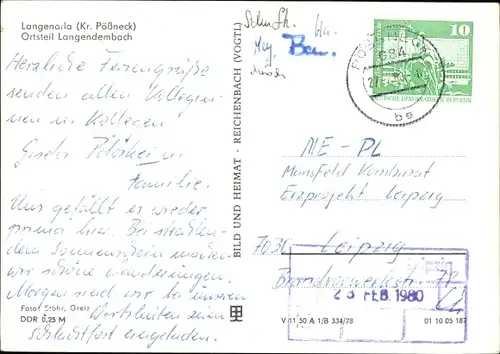 Langenorla (Kr. Pößneck)
Ortsteil Langendembach
Herzliche Feriengrüße
senden allen Kolleginnen
nen u. Kollegen
Gisela
Familie.
Uns gefällt es wieder
prima hier. Bei strahlen-
dem Sonnenschein machen
wir schöne Wanderungen.
Morgen sind wir bei unseren
Wirtsleuten zum
Schlachtfest eingeladen.
Foto: Stöhr, Greiz
DDR 0,25 M
BILD UND HEIMAT · REICHENBACH (VOGTL)
PÖSSNECK
684
be
10
DEUTSCHE DEMOKRATISCHE REPUBLIK
NE-PL
Mansfeld Kombinat
Erzprojekt Leipzig
7031 Leipzig
23 FEB. 1980
V 11 50 A 1/B 334/78
01 10 05 187